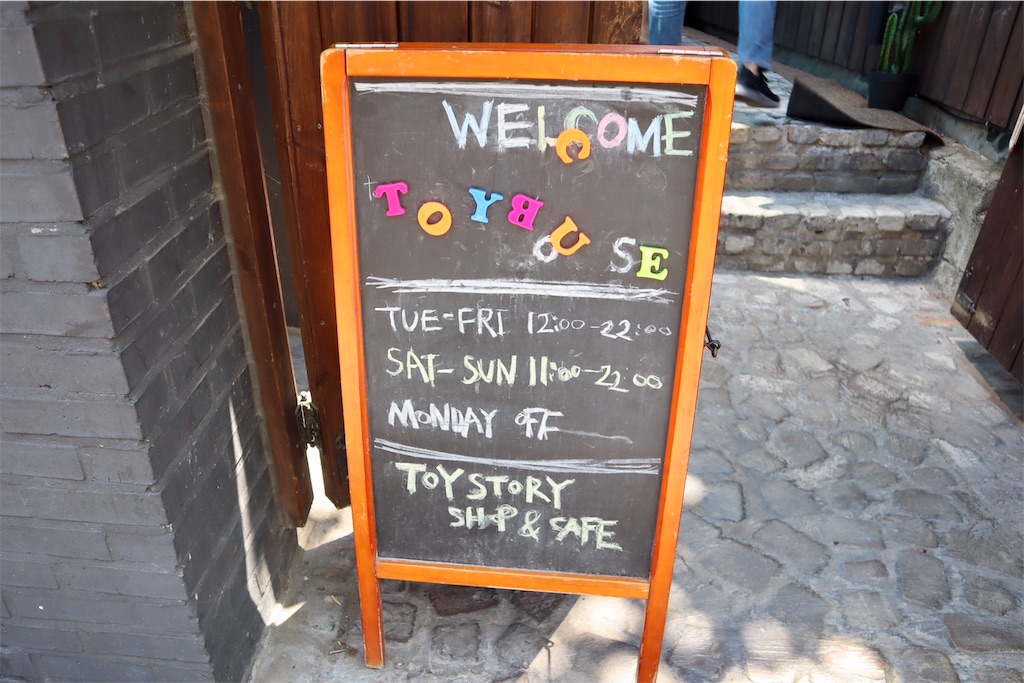 WELCOME
C
TOYBOUSE
TUE-FRI 12:00-22:00
SAT-SUN 11:00-22:00
MONDAY OFF
TOY STORY
SHOP & SAFE